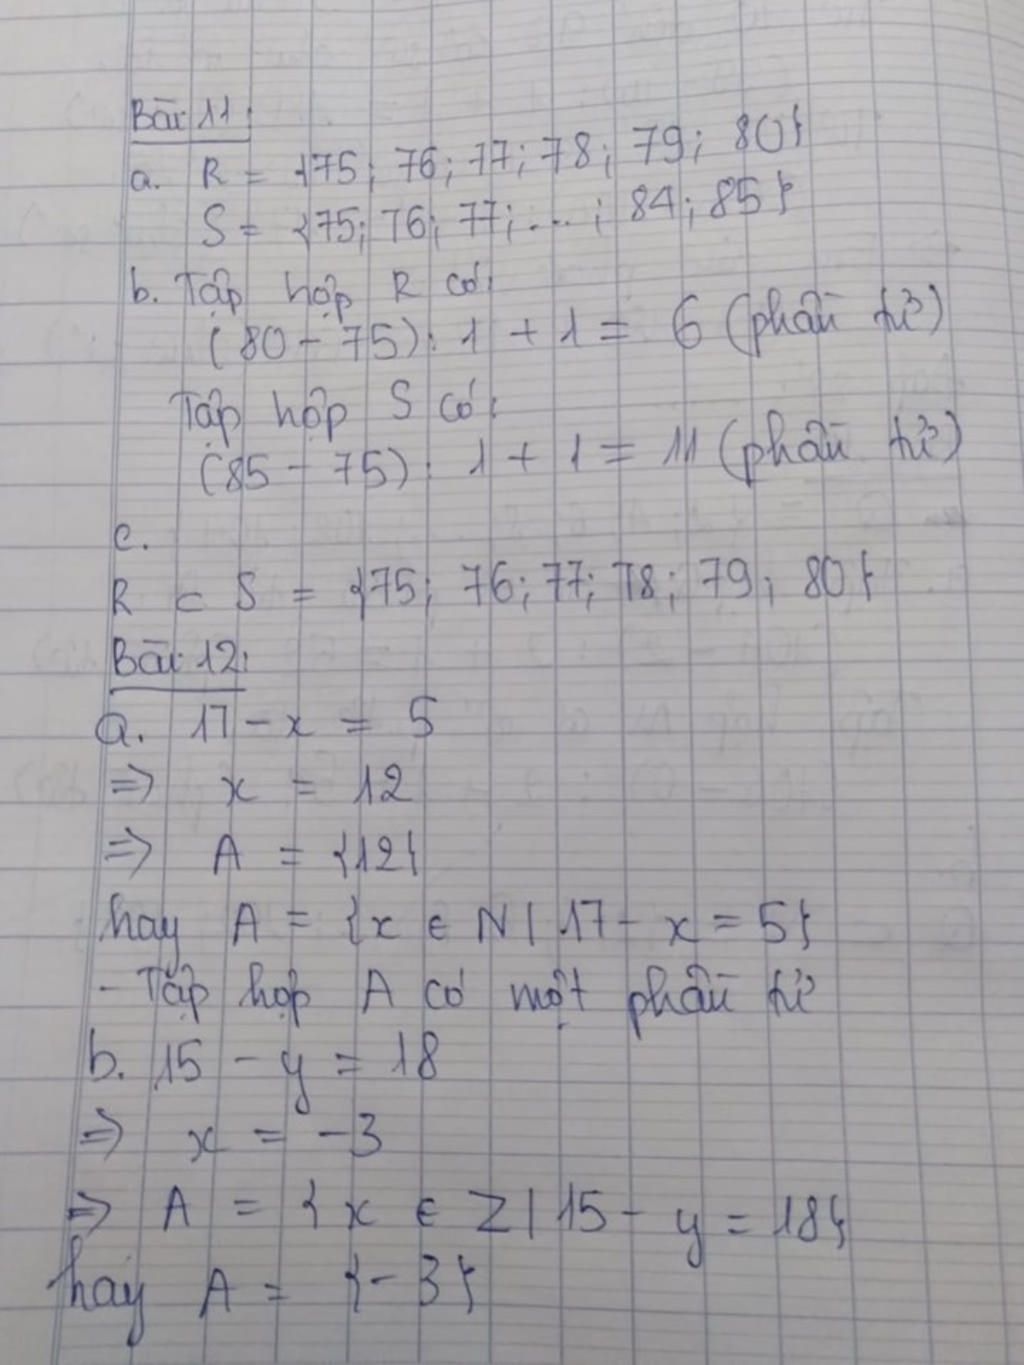 Bài 11:
a. R = {75; 76; 77; 78; 79; 80}
S = {75; 76; 77; ...; 84; 85}
b. Tập hợp R có:
(80 - 75) : 1 + 1 = 6 (phần tử)
Tập hợp S có:
(85 - 75) : 1 + 1 = 11 (phần tử)
c.
R ⊂ S = {75; 76; 77; 78; 79; 80}
Bài 12:
a. 17 - x = 5
=> x = 12
=> A = {12}
hay A = {x ∈ N | 17 - x = 5}
- Tập hợp A có một phần tử
b. 15 - y = 18
=> x = -3
=> A = {x ∈ Z | 15 - y = 18}
hay A = {-3}